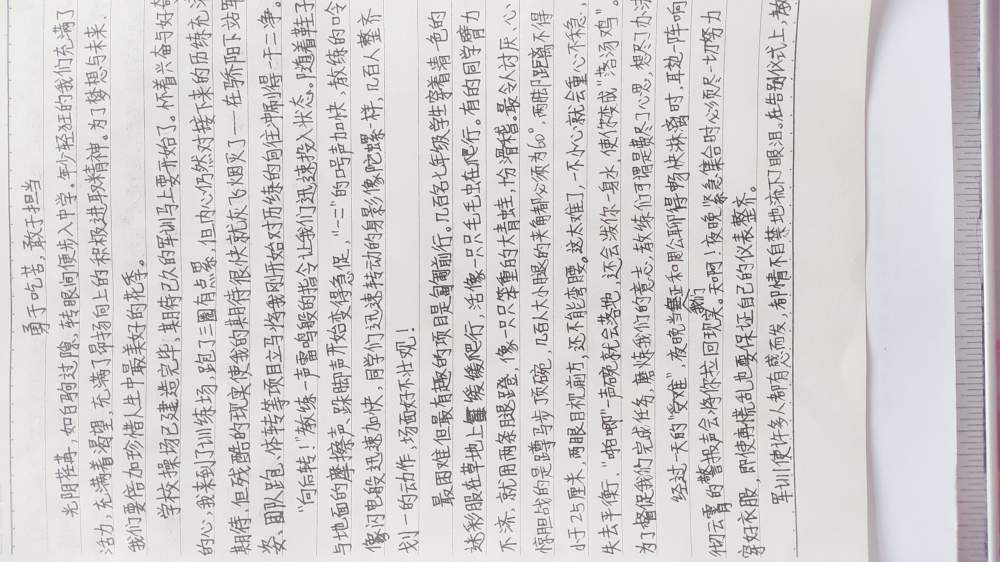 勇于吃苦，敢于担当
光阴荏苒，如白驹过隙。转眼间便步入中学。年少轻狂的我们充满了
活力，充满着渴望，充满了昂扬向上的积极进取精神。为了梦想与未来，
我们要倍加珍惜人生中最美好的花季。
学校操场已建造完毕，期待已久的军训马上要开始了。怀着兴奋与好奇
的心，我来到了训练场，跑了三圈有点累，但内心仍然对接下来的历练充满
期待，但残酷的现实使我的期待很快就灰飞烟灭了——在骄阳下站军
姿、团队跑、体转等项目立马将我刚开始对历练的向往冲刷得一干二净。
“向后转！”教练一声雷鸣般的指令让我们迅速投入状态。随着鞋子
与地面的摩擦声，跺脚声开始变得急促，“一二”的口号声加快，教练的口令
像闪电般迅速加快，同学们迅速转动的身影像陀螺一样，几百人整齐
划一的动作，场面好不壮观！
最困难但最有趣的项目是匍匐前行。几百名七年级学生穿着清一色的
迷彩服在草地上缓缓爬行，活像一只只毛毛虫在爬行。有的同学臂力
不济，就用两条腿蹬，像一只只笨重的大青蛙，十分滑稽。最令人讨厌、心
惊胆战的是蹲马步顶碗，几百人大小腿的夹角都必须为60°，两脚距离不得
小于25厘米，两眼目视前方，还不能弯腰。这太难了，一不小心就会重心不稳，
失去平衡。“啪唧”一声碗就会落地，还会泼你一身水，使你变成“落汤鸡”。
为了督促我们完成任务，磨炼我们的意志，教练们可谓是费尽了心思，想尽了办法
经过一天的“受难”，夜晚当我们正和周公聊得畅快淋漓时，耳边一阵响
彻云霄的警报声会将你拉回现实。天啊！夜晚紧急集合时必须尽一切努力
穿好衣服，即使再慌乱也要保证自己的仪表整齐。
军训使许多人都有感而发，都情不自禁地流下眼泪。在告别仪式上，教